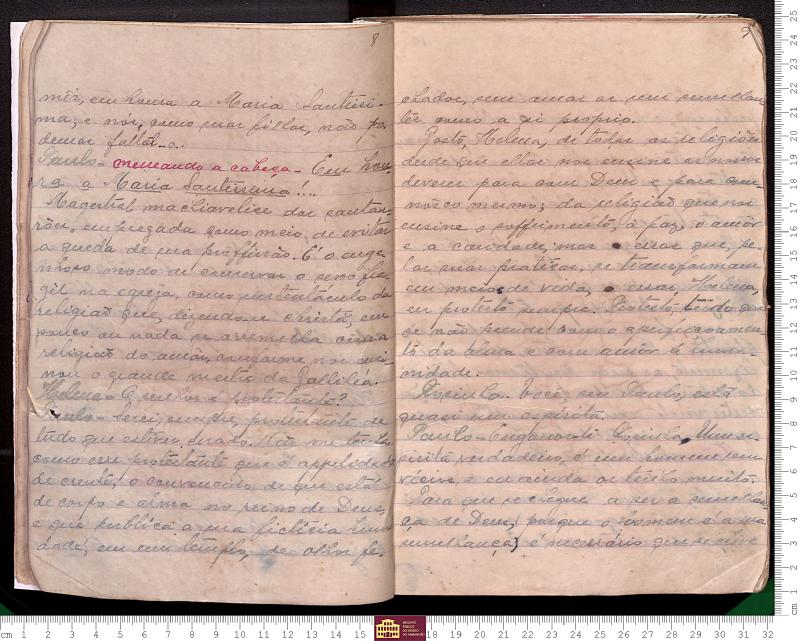 8
mêz, em honra a Maria Santissi-
ma; e nós, como suas filhas, não po-
demos faltal-o.
Paulo - meneando a cabeça - Em hon-
ra a Maria Santissima!...
Magestral machiavelice dos santar-
rões, empregada como meio, de evitar
a queda de sua proffissão. É o enge-
nhoso modo de conservar o sexo fra-
gil na egreja, como sustentáculo da
religião que, dizendo-se christã, em
pouco ou nada se assemelha com a
religião do amôr, conforme nos ensi-
nou o grande mestre da Galliléa.
Helena - O senhor é protestante?
Paulo - Serei, sempre, protestante de
tudo que estiver errado. Não me tenha
como esse protestante que é appelidado
de crente; o convencido de que está
de corpo e alma no reino de Deus,
e que publíca a sua ficticia humil-
dade, em um templo, de olhos fe-
9
chados, sem amar ao seu semelhan-
te como a si proprio.
Gosto, Helena, de todas as religiões
desde que ellas nos ensine os nossos
deveres para com Deus e para com-
nosco mesmo; da religião que nos
ensine o soffrimento, a paz, o amôr
e a caridade; mas essas que, pe-
las suas praticas, se transformam
em meios de vida, a essas Helena,
eu protesto sempre. Protesto, tudo que
se não prende com o aperfeiçoamen-
to da alma e com amôr á huma-
nidade.
Rosinha. Você, seu Paulo, está
quasi um espirito.
Paulo - Engano Rosinha. Um es-
pirito verdadeiro, é um homem sem
vicios, e eu ainda os tenho muito.
Para que se chegue a ser a semelhan-
ça de Deus, (porque o homem é a sua
semelhança) é necessário que se
cm 1 2 3 4 5 6 7 8 9 10 11 12 13 14 15 18 19 20 21 22 23 24 25 26 27 28 29 30 31 32
ARQUIVO
PÚBLICO
DO ESTADO
DO MARANHÃO
cm 1 2 3 4 5 6 7 8 9 10 11 12 13 14 15 16 17 18 19 20 21 22 23 24 25